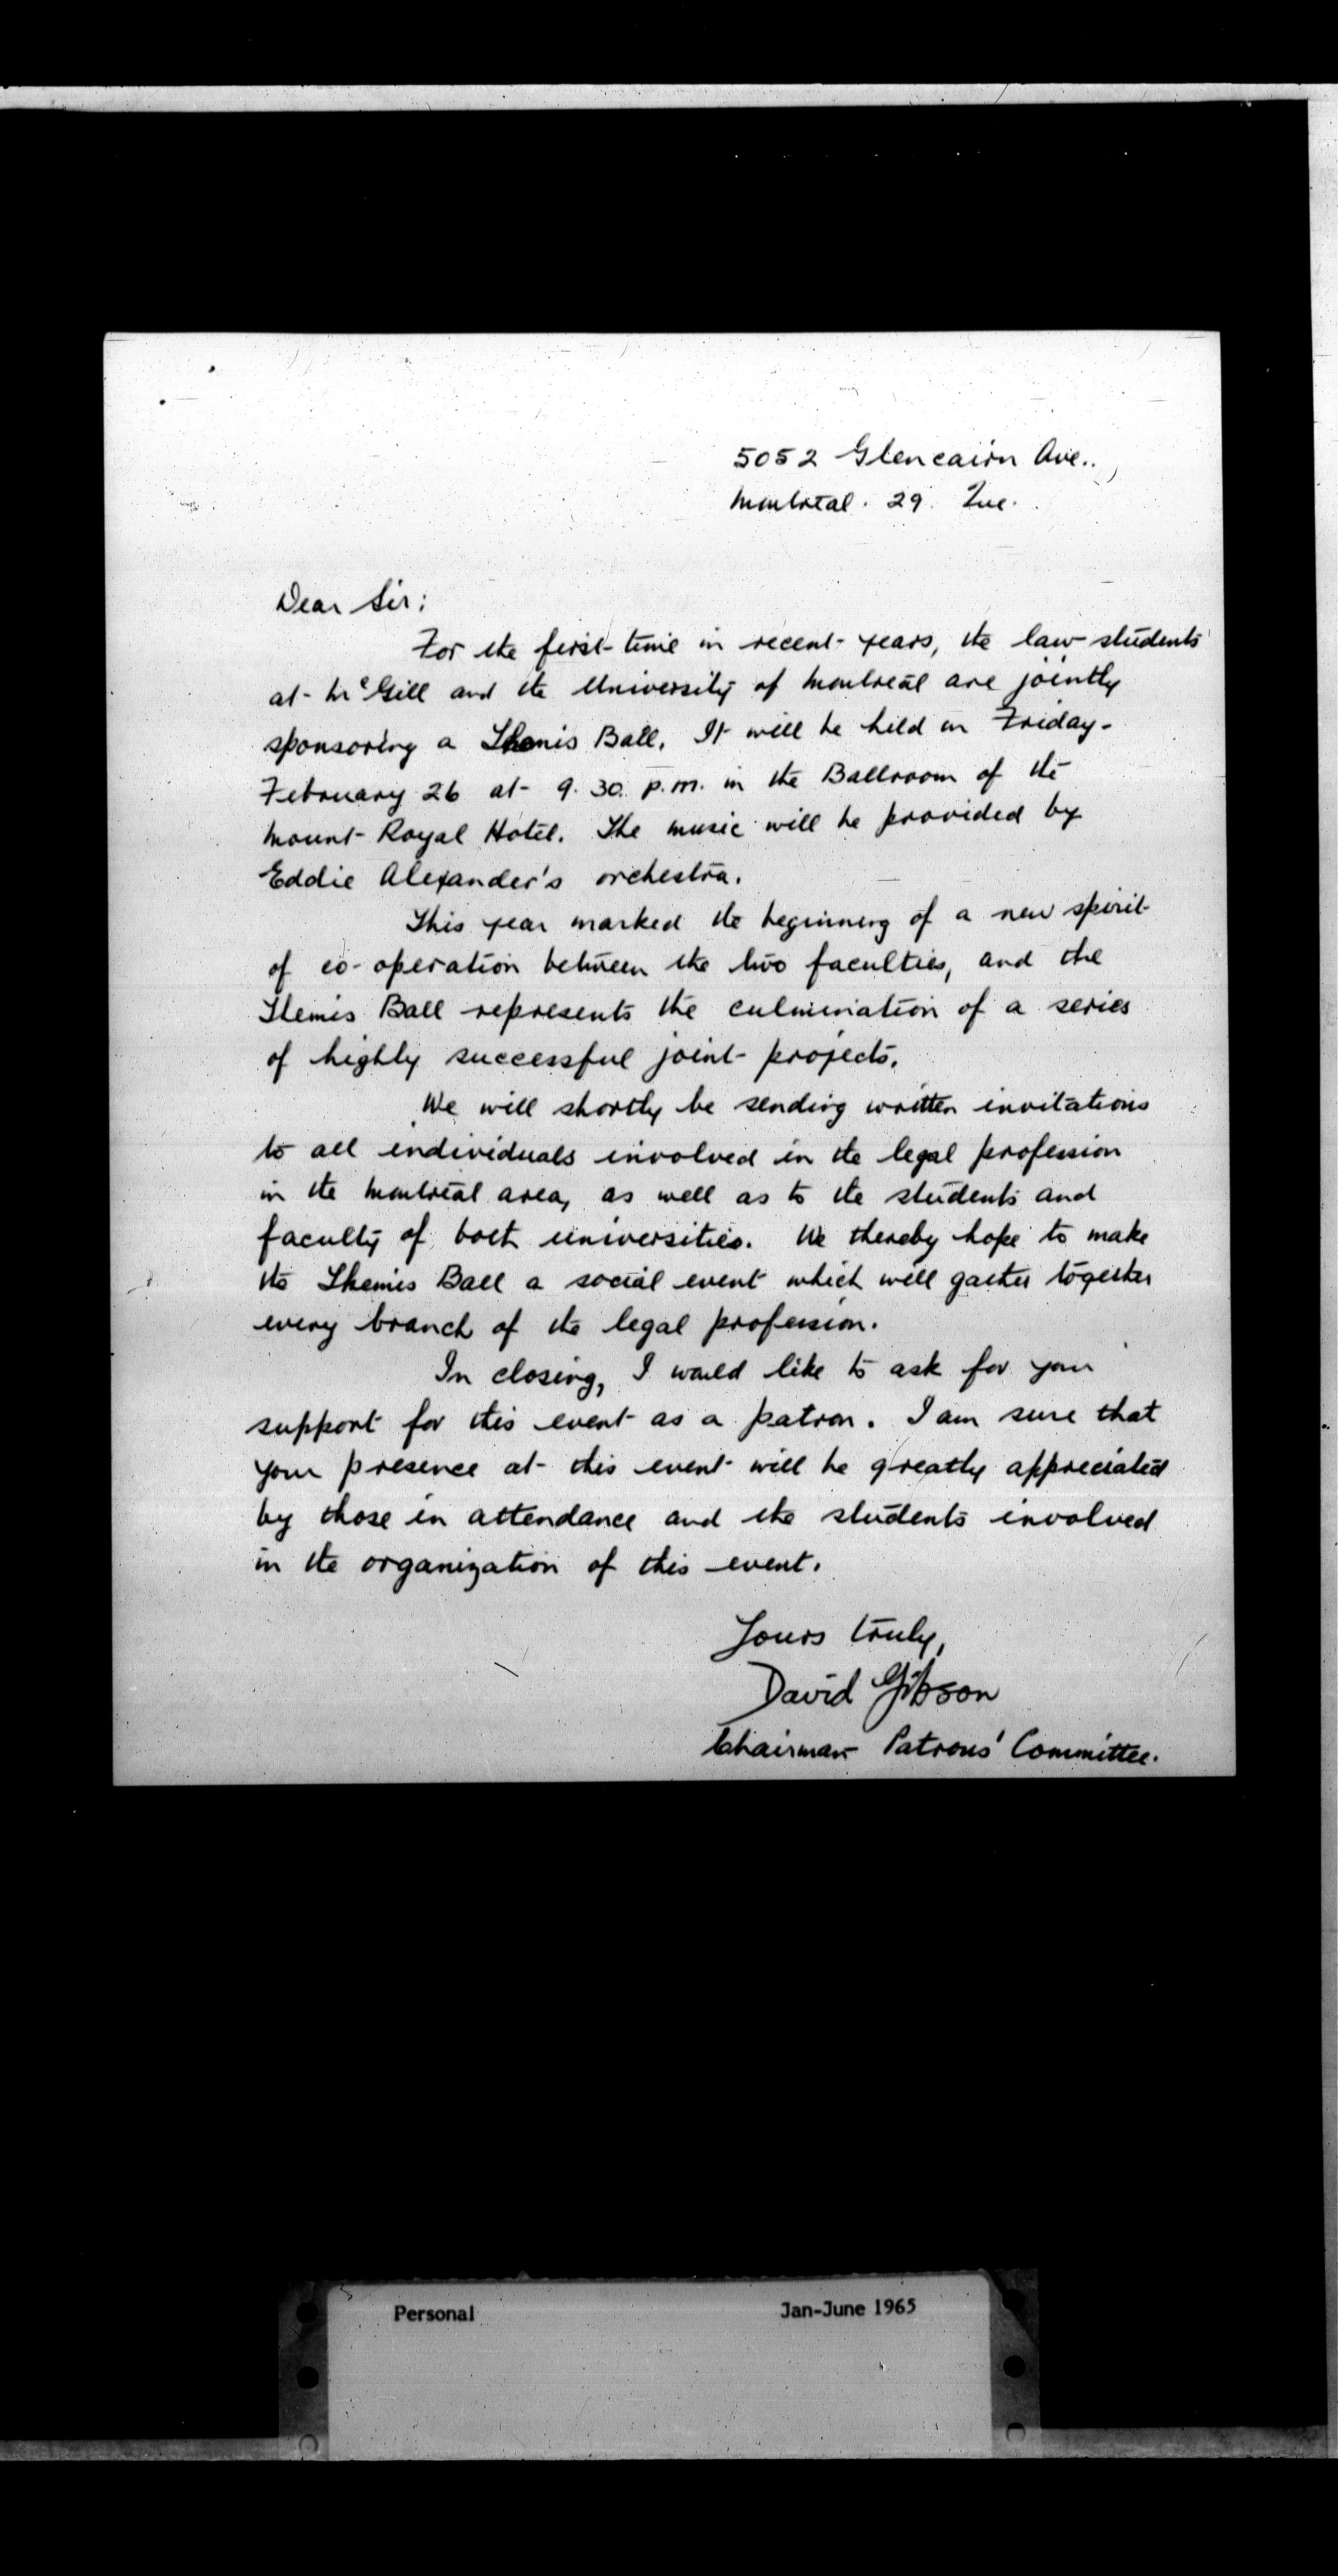 5052 Glencairn Ave.,
Montreal. 29. Que.
Dear Sir:
For the first time in recent years, the law students
at McGill and the University of Montreal are jointly
sponsoring a Themis Ball. It will be held on Friday -
February 26 at 9.30. p.m. in the Ballroom of the
Mount Royal Hotel. The music will be provided by
Eddie Alexander's orchestra.
This year marked the beginning of a new spirit
of co-operation between the two faculties, and the
Themis Ball represents the culmination of a series
of highly successful joint projects.
We will shortly be sending written invitations
to all individuals involved in the legal profession
in the Montreal area, as well as to the students and
faculty of both universities. We thereby hope to make
the Themis Ball a social event which will gather together
every branch of the legal profession.
In closing, I would like to ask for your
support for this event as a patron. I am sure that
your presence at this event will be greatly appreciated
by those in attendance and the students involved
in the organization of this event.
Yours truly,
David Gibson
Chairman Patrons' Committee.
Personal Jan-June 1965